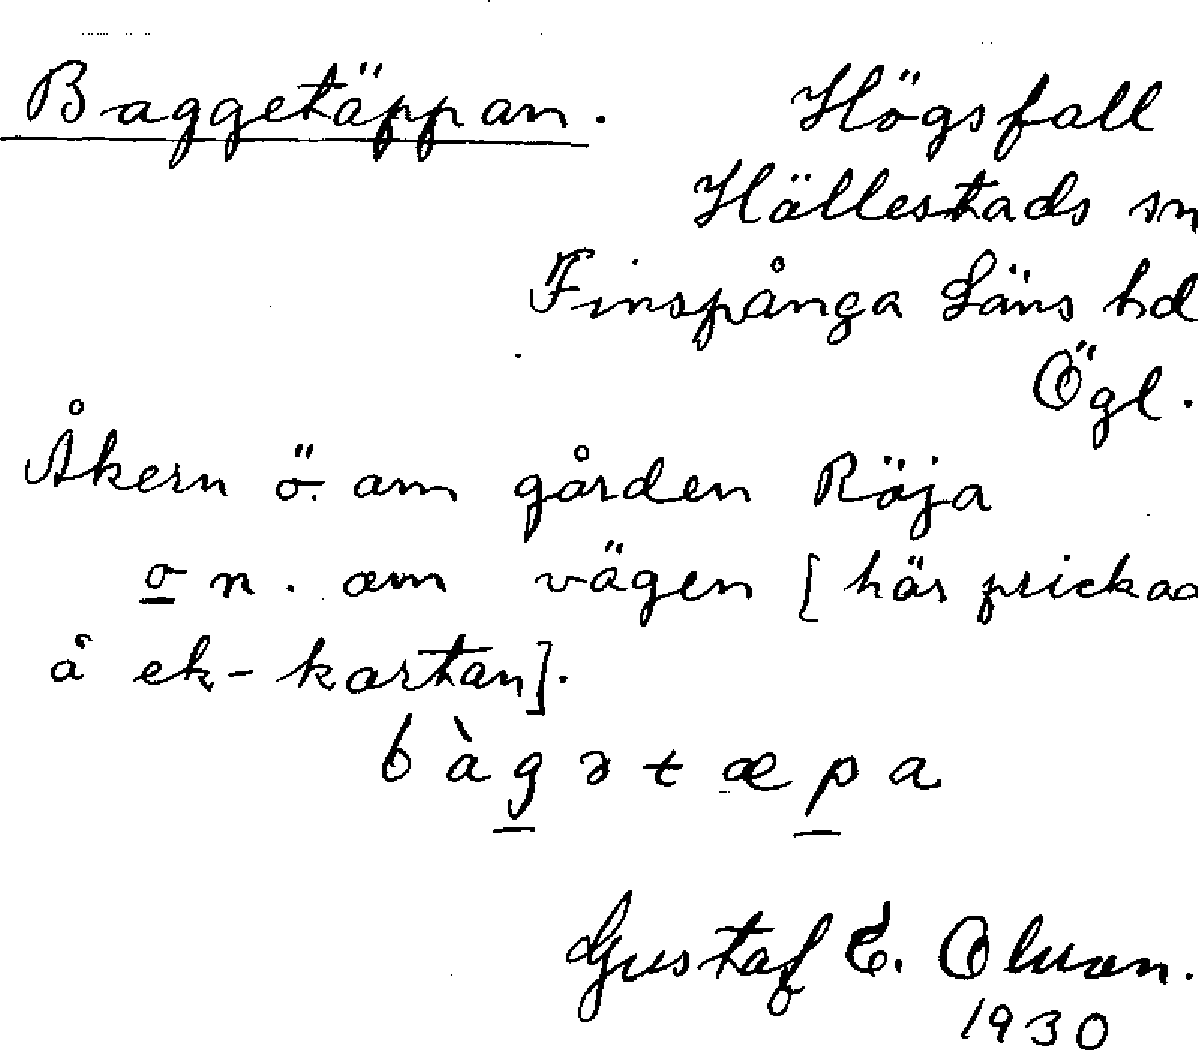 Baggetäppan. Högsfall
Hällestads sn
Finspånga Läns hd
Ögl.
Åkern ö. om gården Röja
o n. om vägen [här prickad
å ek-kartan].
bàgətæpa
Gustaf E. Olsson.
1930